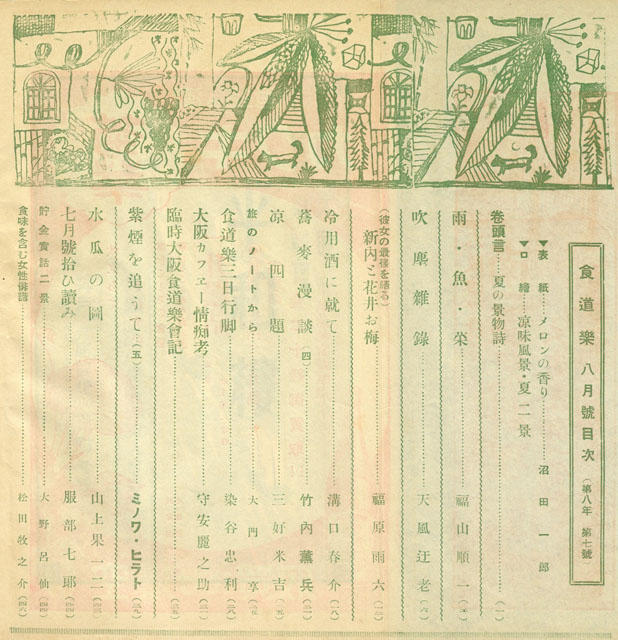 食道樂 八月號目次 (第八年 第七號)
▼表紙…メロンの香り……沼田一郎
▼口繪…凉味風景・夏二景
卷頭言……夏の景物詩……(一)
雨・魚・菜……福山順一
吹塵雜錄……天風迂老
(彼女の最後を語る)
新内と花井お梅……福原雨六
冷用酒に就て……溝口春介
蕎麥漫談(四)……竹内薫兵
凉四題……三好米吉
旅のノートから……大門享
食道樂三日行脚……染谷忠利
大阪カフエー情痴考……守安麗之助
臨時大阪食道樂會記
紫煙を追うて(五)……ミノワ・ヒラト
水瓜の圖……山上果一二
七月號拾ひ讀み……服部七郎
貯金實話二景……大野呂仙(四四)
食味を含む女性俳譜……松田牧之介(四六)